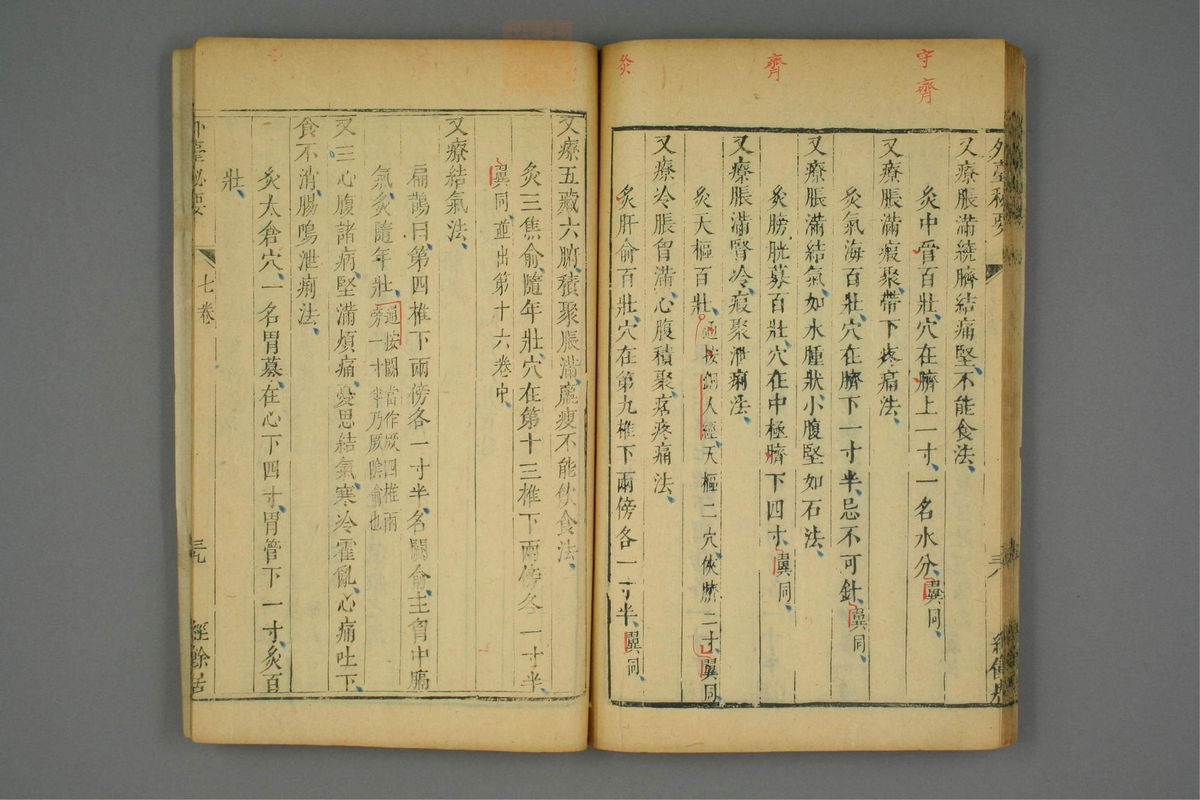 守
齊
齊
灸
外臺秘要
三八
又療脹滿繞臍結痛堅不能食法
灸中管百壯穴在臍上一寸一名水分翼同
又療脹滿瘕聚帶下疼痛法
灸氣海百壯穴在臍下一寸半忌不可針翼同
又療脹滿結氣如水腫狀小腹堅如石法
灸膀胱募百壯穴在中極臍下四寸翼同
又療脹滿腎冷瘕聚泄痢法
灸天樞百壯通按銅人經天樞二穴俠臍二寸翼同
又療冷脹胷滿心腹積聚疼痛法
灸肝俞百壯穴在第九椎下兩傍各一寸半翼同
又療五藏六腑積聚脹滿羸瘦不能飲食法
灸三焦俞隨年壯穴在第十三椎下兩傍各一寸半
翼同並出第十六卷中
又療結氣法
扁鵲曰第四椎下兩傍各一寸半名闕俞主胷中膈
氣灸隨年壯通按闕當作厥四椎兩
旁一寸半乃厥陰俞也
又三心腹諸病堅滿煩痛憂思結氣寒冷霍亂心痛吐下
食不消腸鳴泄痢法
灸太倉穴一名胃募在心下四寸胃管下一寸灸百
壯
外臺秘要
七卷
三九
經餘居